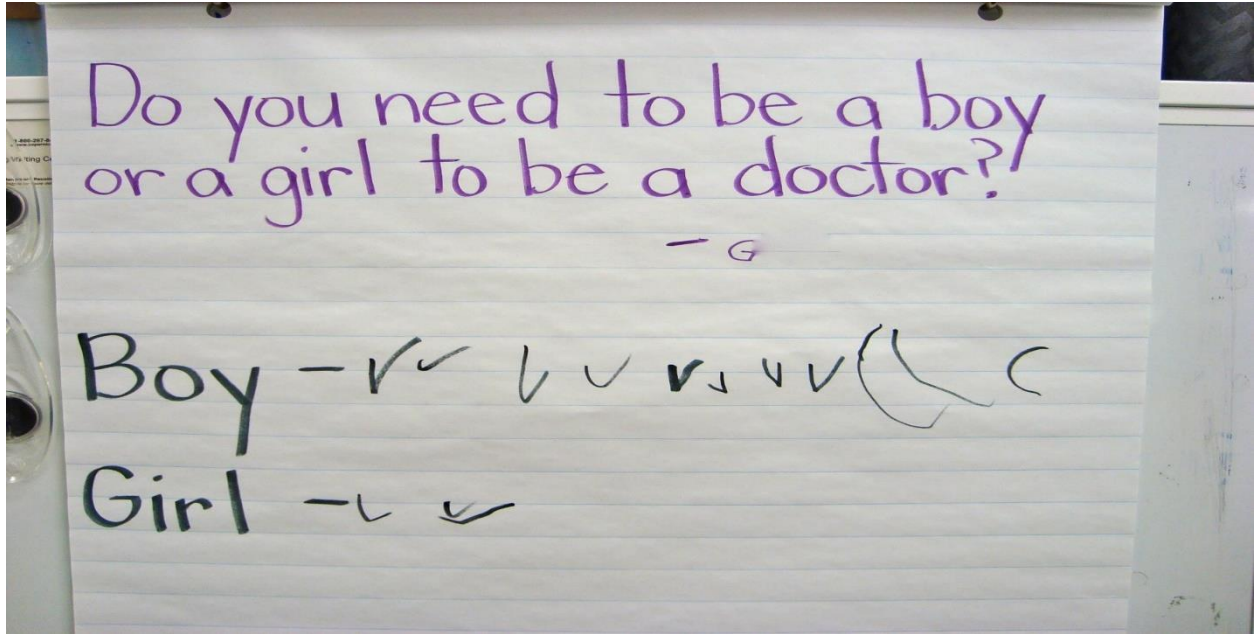 Do you need to be a boy
or a girl to be a doctor?
- G
Boy - ✓ ✓ ✓ ✓ ✓ ✓ ✓ ✓
Girl - ✓ ✓